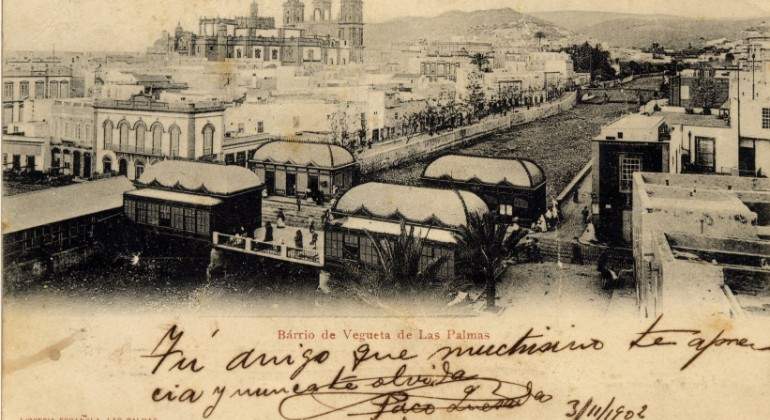 Bárrio de Vegueta de Las Palmas
Tú amigo que muchisimo te apre
cia y nunca te olvida
Paco Quesada
3/11/1902